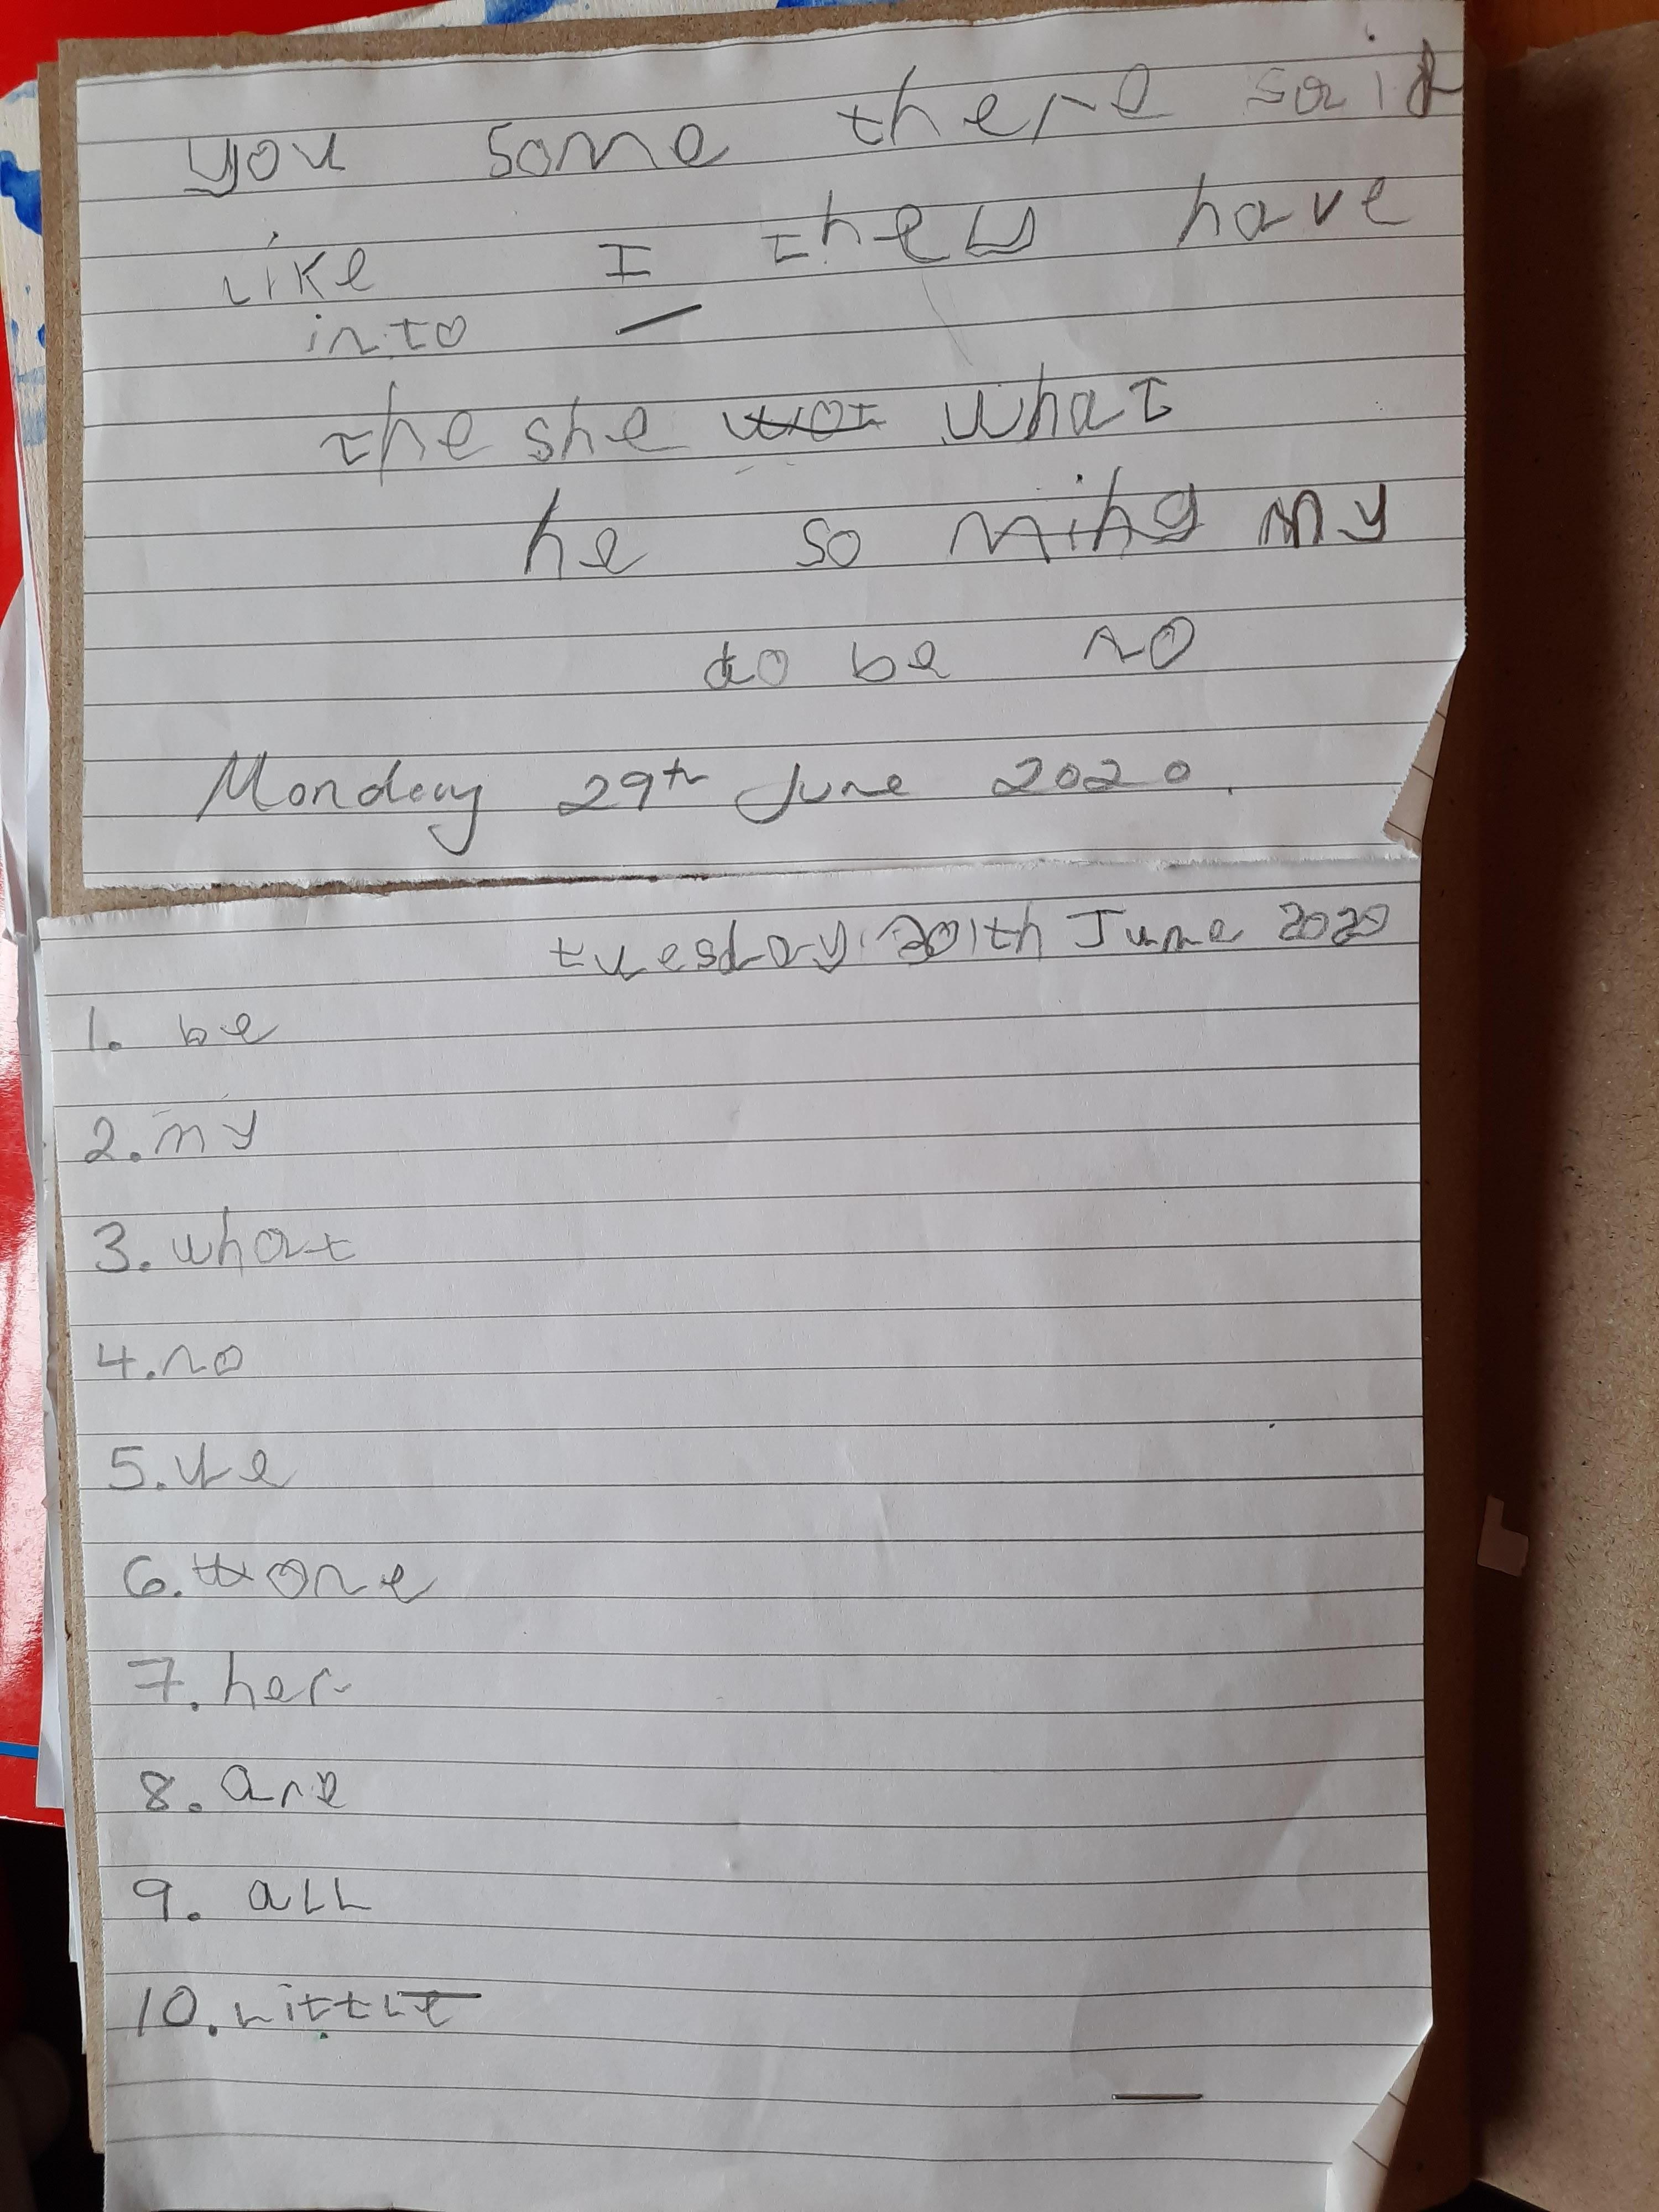 you some there said
like I they have
into
the she wot what
he so ming my
do be no
Monday 29th June 2020.
tuesday 30th June 2020
1. be
2. my
3. what
4. no
5. we
6. one
7. her
8. are
9. all
10. little